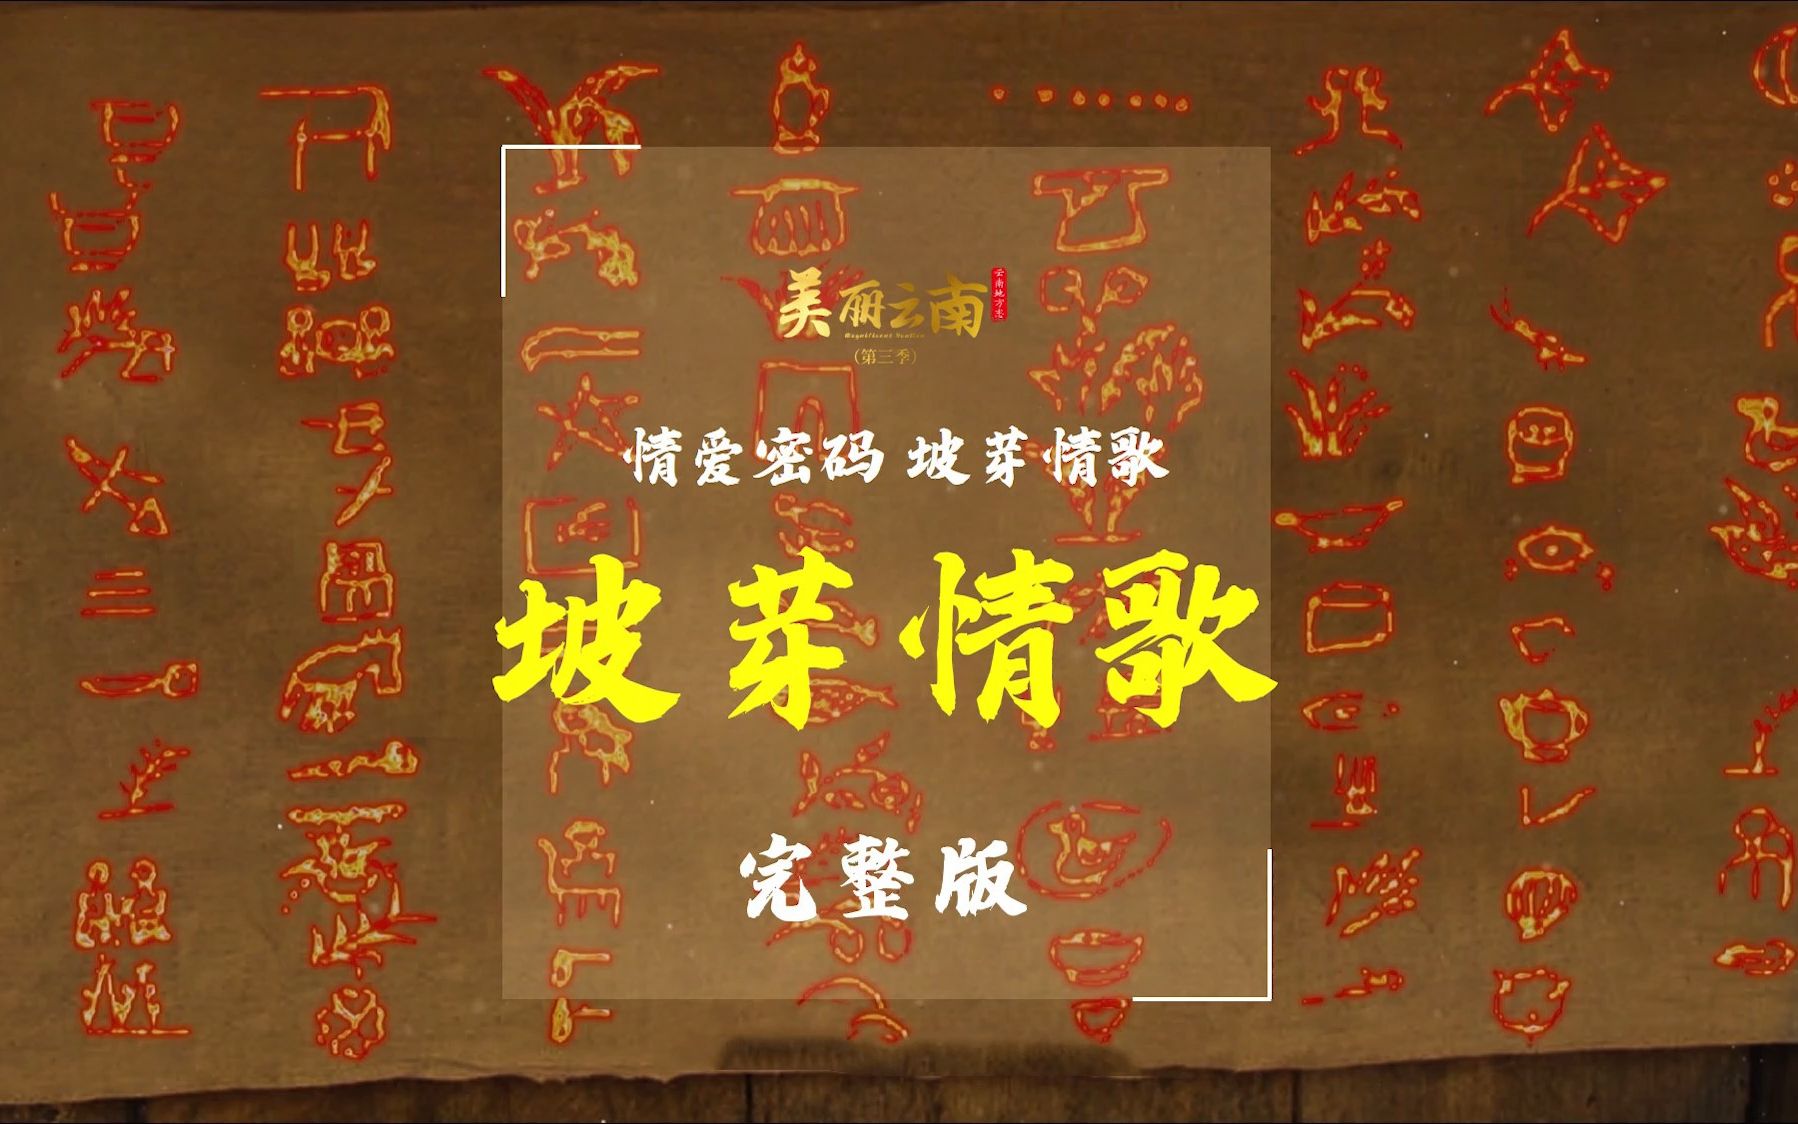 美丽云南
云南地方志
Magnificent Yunnan
(第三季)
情爱密码 坡芽情歌
坡芽情歌
完整版